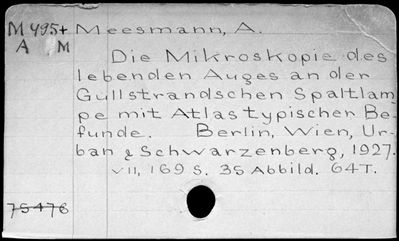 M 495+ Meesmann, A.
A M
Die Mikroskopie des
lebenden Auges an der
Gullstrandschen Spaltlam
pe mit Atlas typischer Be-
funde. Berlin, Wien, Ur-
ban & Schwarzenberg, 1927.
VII, 169 S. 35 Abbild. 64T.
75476